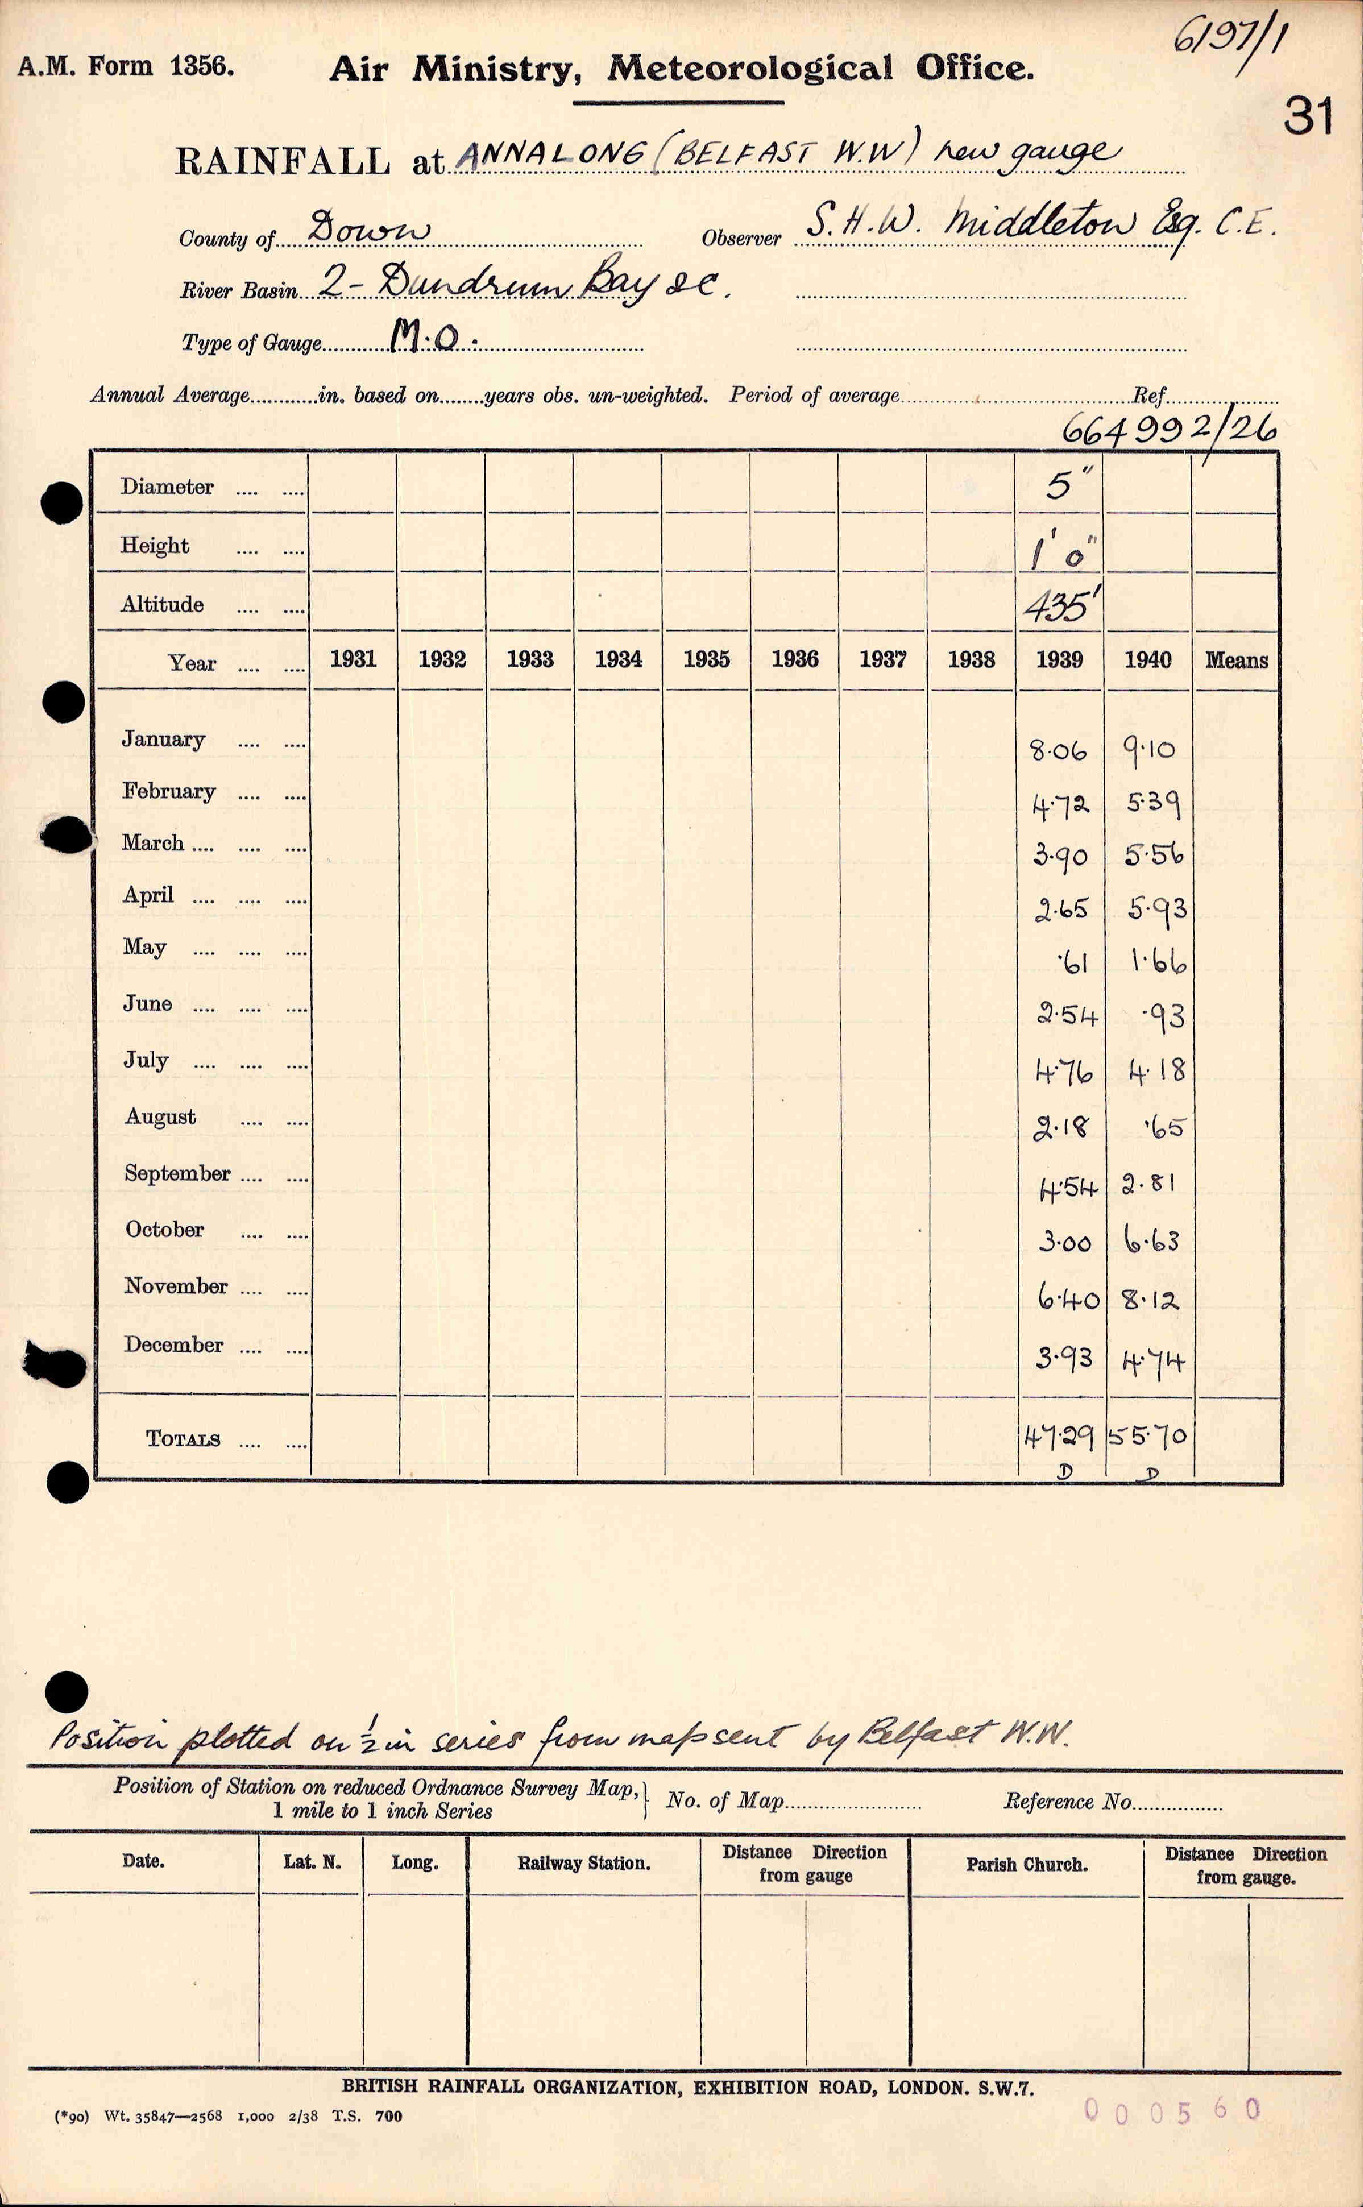 6197/1
A.M. Form 1356. Air Ministry, Meteorological Office.
31
RAINFALL at ANNALONG (BELFAST W.W) new gauge
County of Down Observer S.H.W. Middleton Esq. C.E.
River Basin 2 - Dundrum Bay &c.
Type of Gauge M.O.
Annual Average in. based on years obs. un-weighted. Period of average Ref.
664992/26
Diameter 5"
Height 1' 0"
Altitude 435'
Year 1931 1932 1933 1934 1935 1936 1937 1938 1939 1940 Means
January 8.06 9.10
February 4.72 5.39
March 3.90 5.56
April 2.65 5.93
May .61 1.66
June 2.54 .93
July 4.76 4.18
August 2.18 .65
September 4.54 2.81
October 3.00 6.63
November 6.40 8.12
December 3.93 4.74
TOTALS 47.29 55.70
D D
Position plotted on ½ in series from map sent by Belfast W.W.
Position of Station on reduced Ordnance Survey Map, 1 mile to 1 inch Series } No. of Map Reference No.
Date. Lat. N. Long. Railway Station. Distance Direction from gauge Parish Church. Distance Direction from gauge.
BRITISH RAINFALL ORGANIZATION, EXHIBITION ROAD, LONDON. S.W.7.
(*90) Wt. 35847—2568 1,000 2/38 T.S. 700
000560